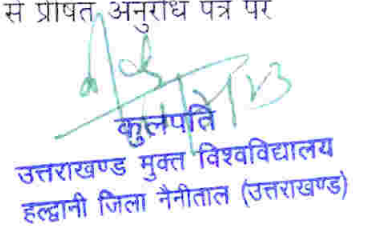 से प्रेषित अनुरोध पत्र पर
कुलपति
उत्तराखण्ड मुक्त विश्वविद्यालय
हल्द्वानी जिला नैनीताल (उत्तराखण्ड)